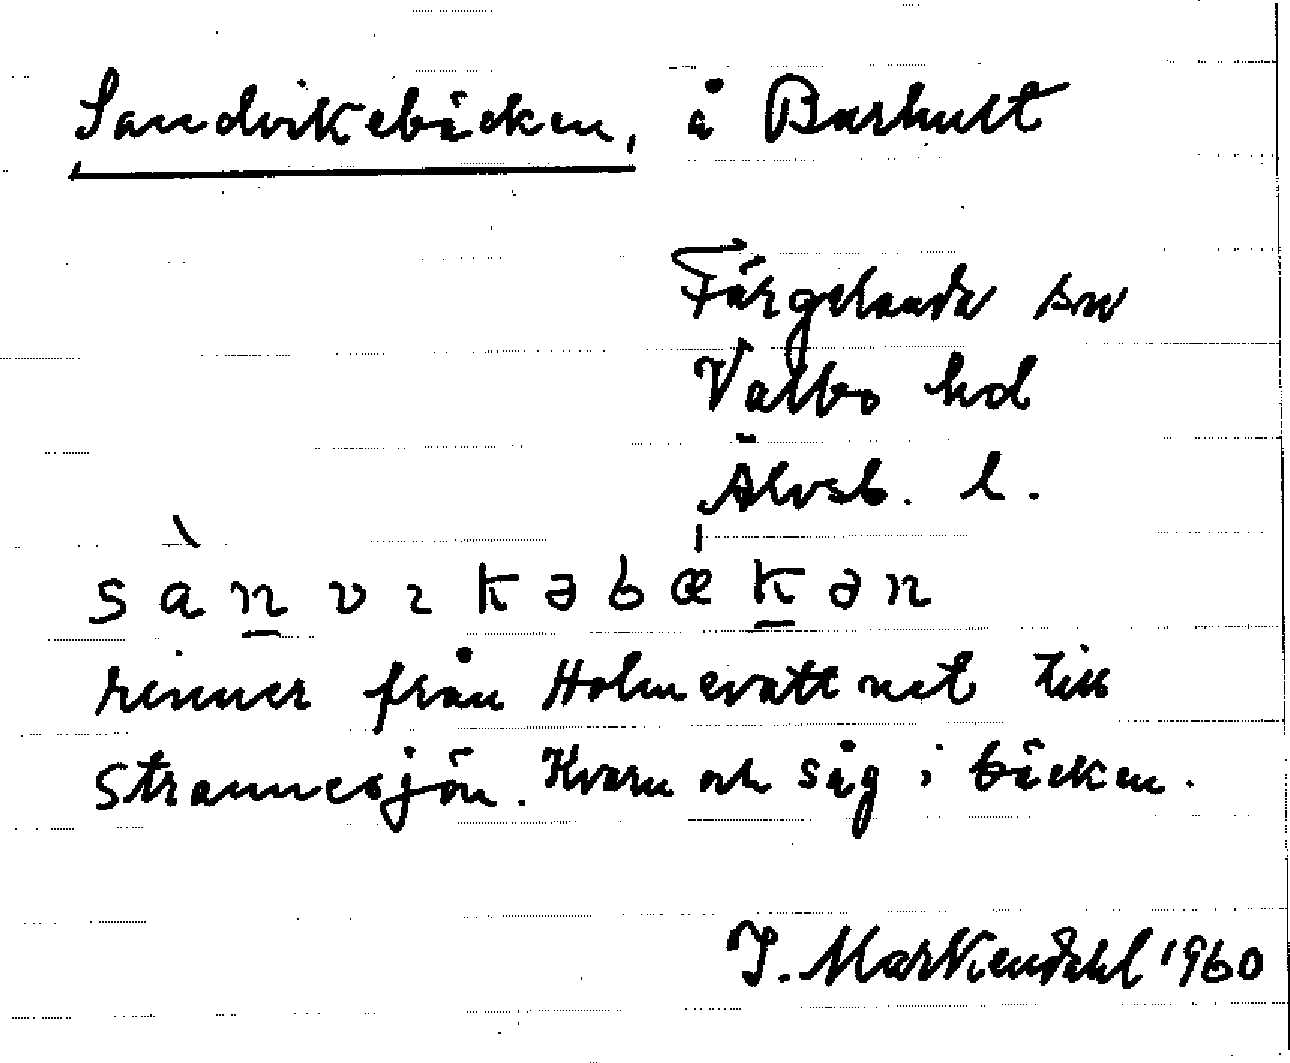 Sandvikebäcken, å Barhult
Färgelanda sn
Valbo hd
Älvsb. l.
sànvɩkəbǽkən
rinner från Holmevattnet till
Strannesjön. Kvarn och såg i bäcken.
J. Markendahl 1960